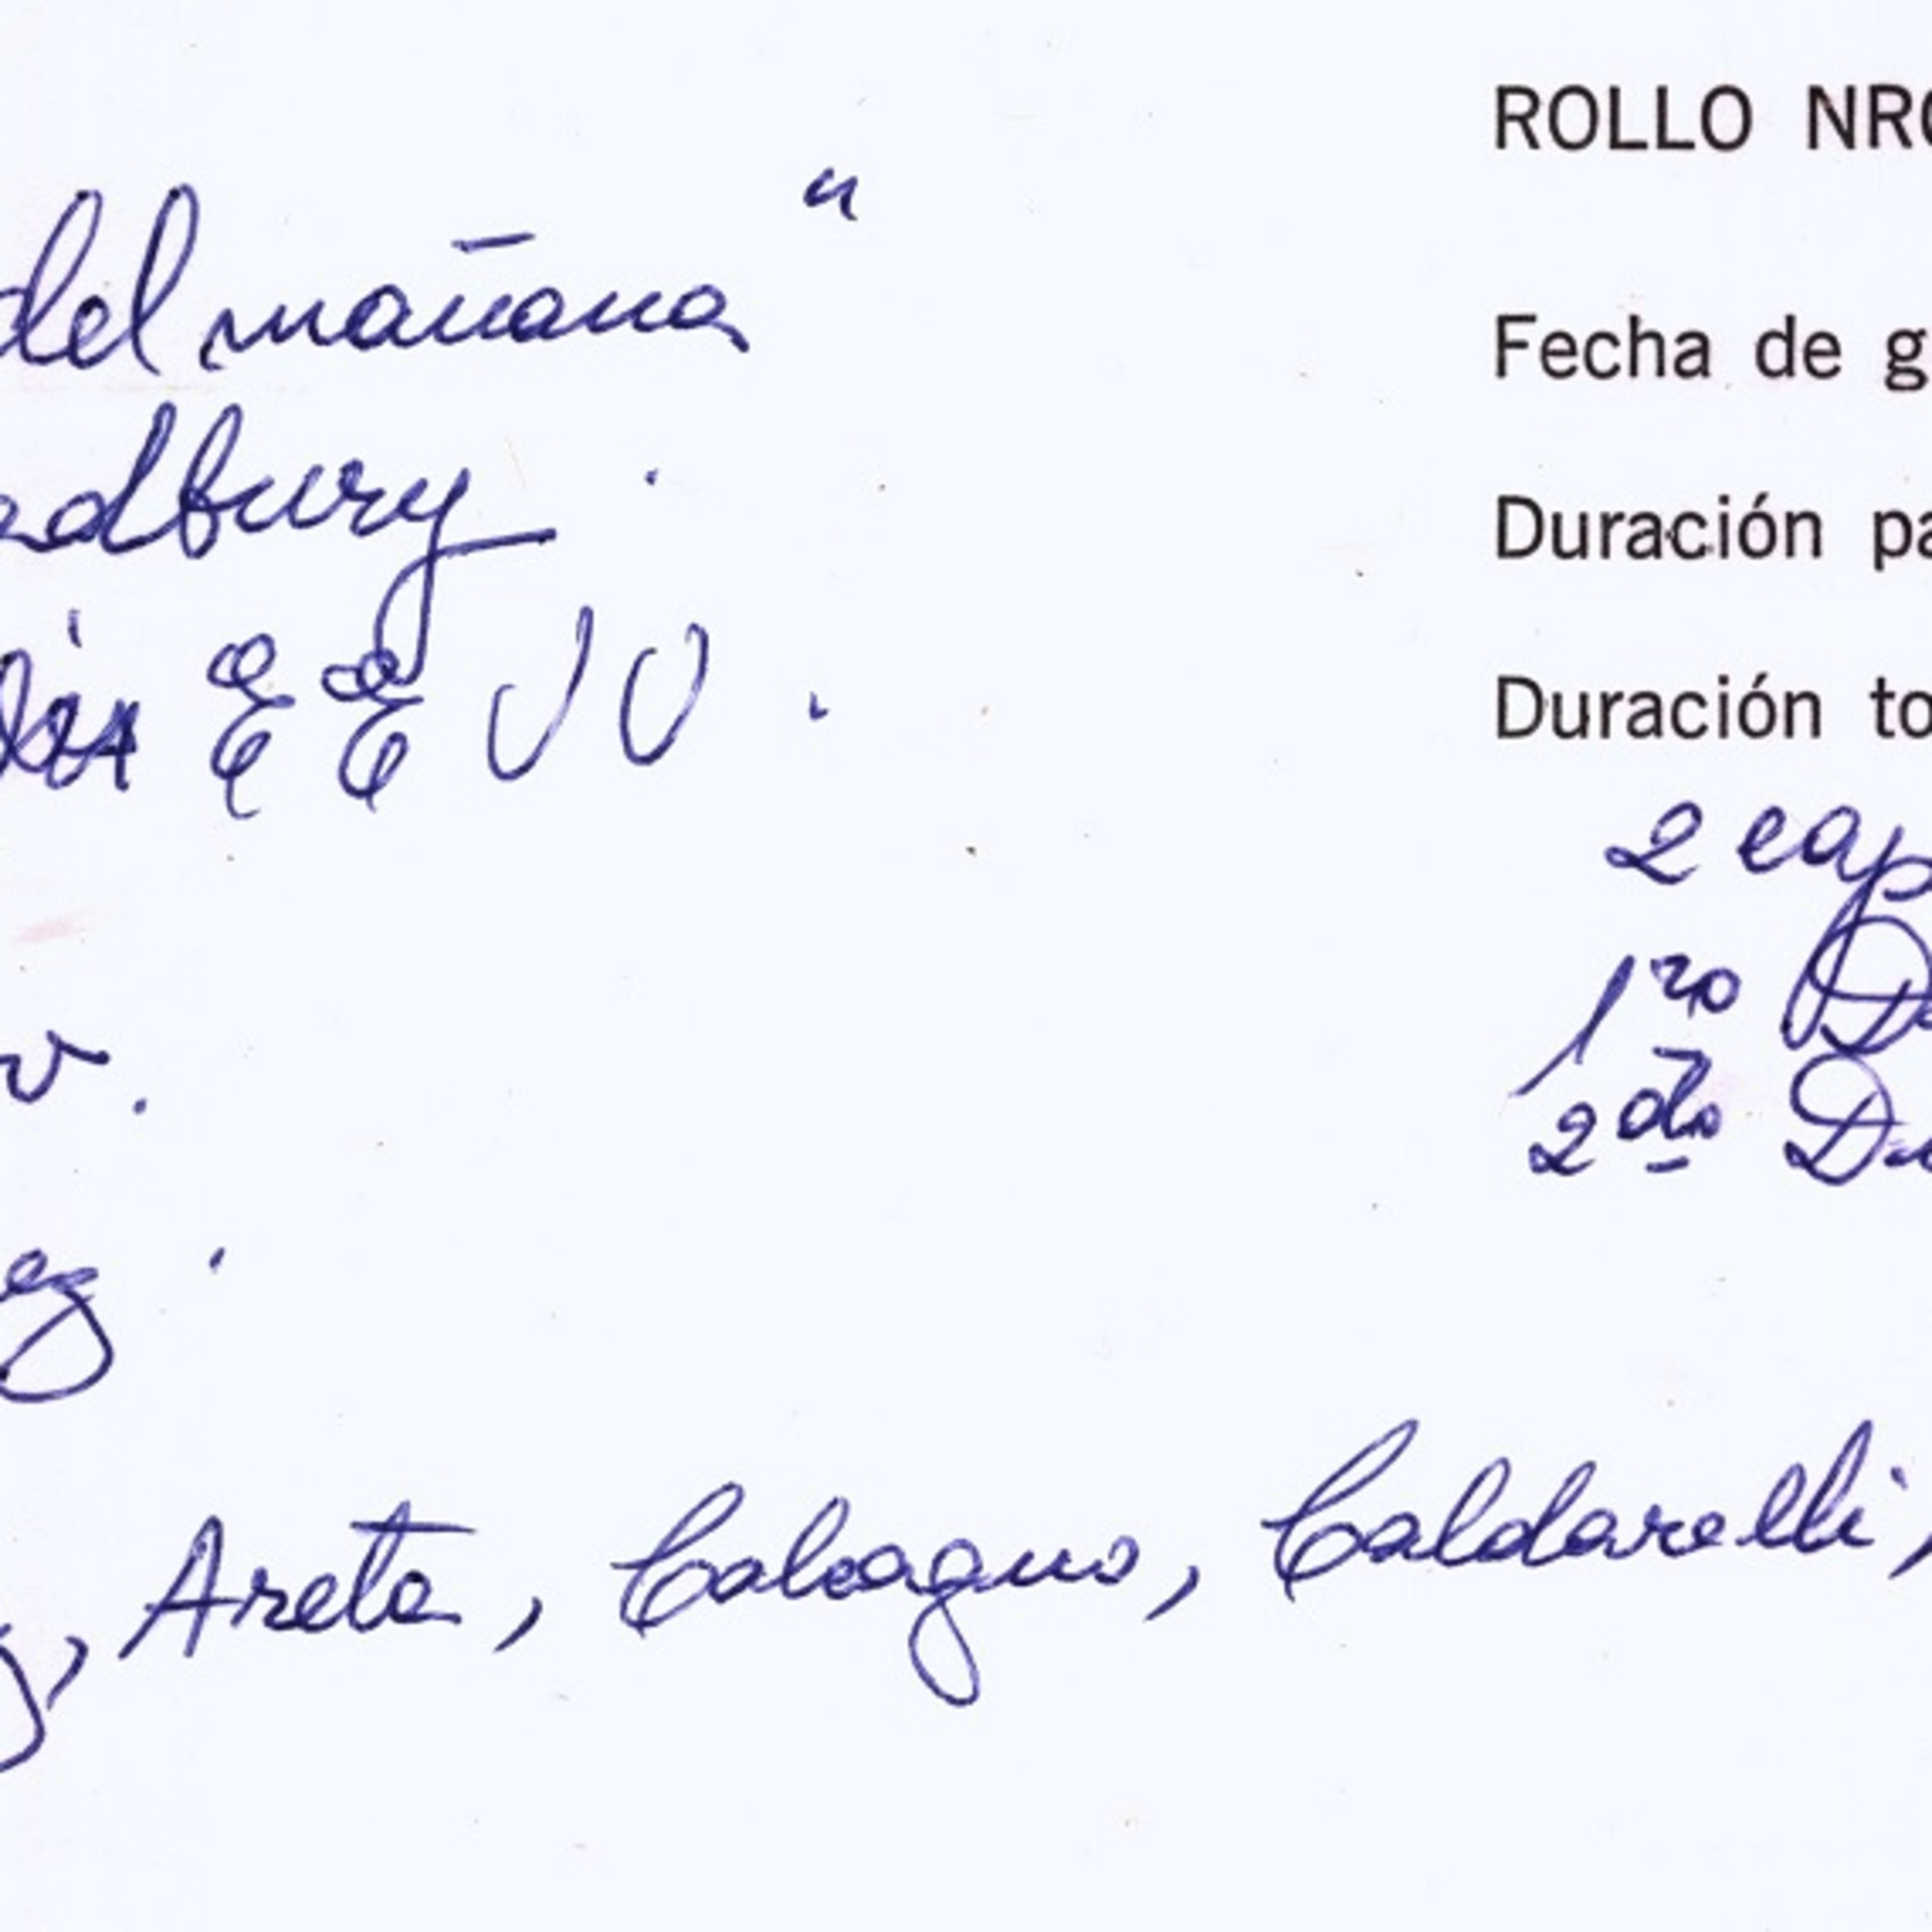 ROLLO NRO
del mañana"
Fecha de g
adbury.
Duración pa
EE UU.
Duración to
2 cap
1ro
2do
Areta, Calcagno, Caldarelli,